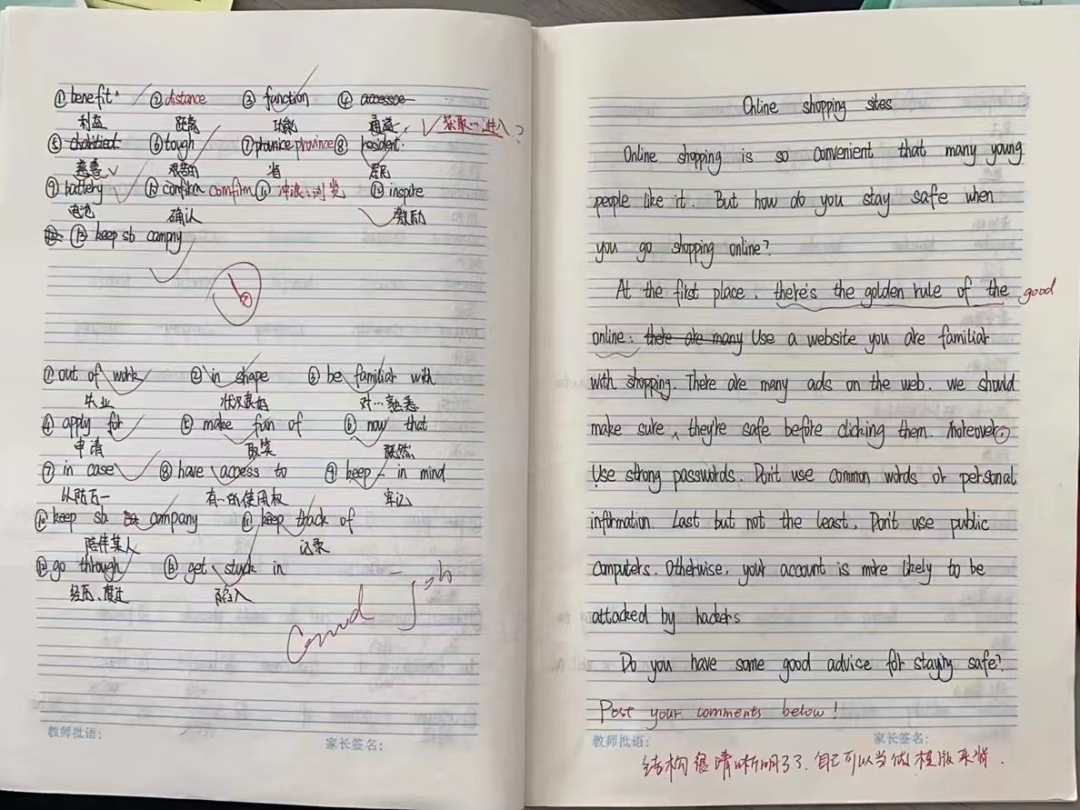 ① benefit ② distance ③ function ④ accessoe
利益 距离 功能 通道 获取…进入?
⑤ chalitied ⑥ tough ⑦ provnice province ⑧ hesident
慈善 艰苦的 省 居民
⑨ battery ⑩ confirm comfirm ⑪ 冲浪;浏览 ⑫ inspire
电池 确认 激励
⑬ keep sb campny
① out of work ② in shape ③ be familiar with
失业 状况良好 对…熟悉
④ apply for ⑤ make fun of ⑥ now that
申请 取笑 既然
⑦ in case ⑧ have access to ⑨ keep - in mind
以防万一 有…的使用权 牢记
⑩ keep sb company ⑪ keep track of
陪伴某人 记录
⑫ go through ⑬ get stuck in
经历、度过 陷入
Good Job
教师批语: 家长签名:
Online shopping sites
Online shopping is so convenient that many young
people like it. But how do you stay safe when
you go shopping online?
At the first place, there's the golden rule of the good
online: there are many Use a website you are familiar
with shopping. There are many ads on the web. we should
make sure they're safe before clicking them. Moreover,
Use strong passwords. Don't use common words or personal
information. Last but not the least, Don't use public
computers. Otherwise, your account is more likely to be
attacked by hackers
Do you have some good advice for staying safe?
Post your comments below!
教师批语: 家长签名:
结构很清晰明了了.自己可以当做模版来背.